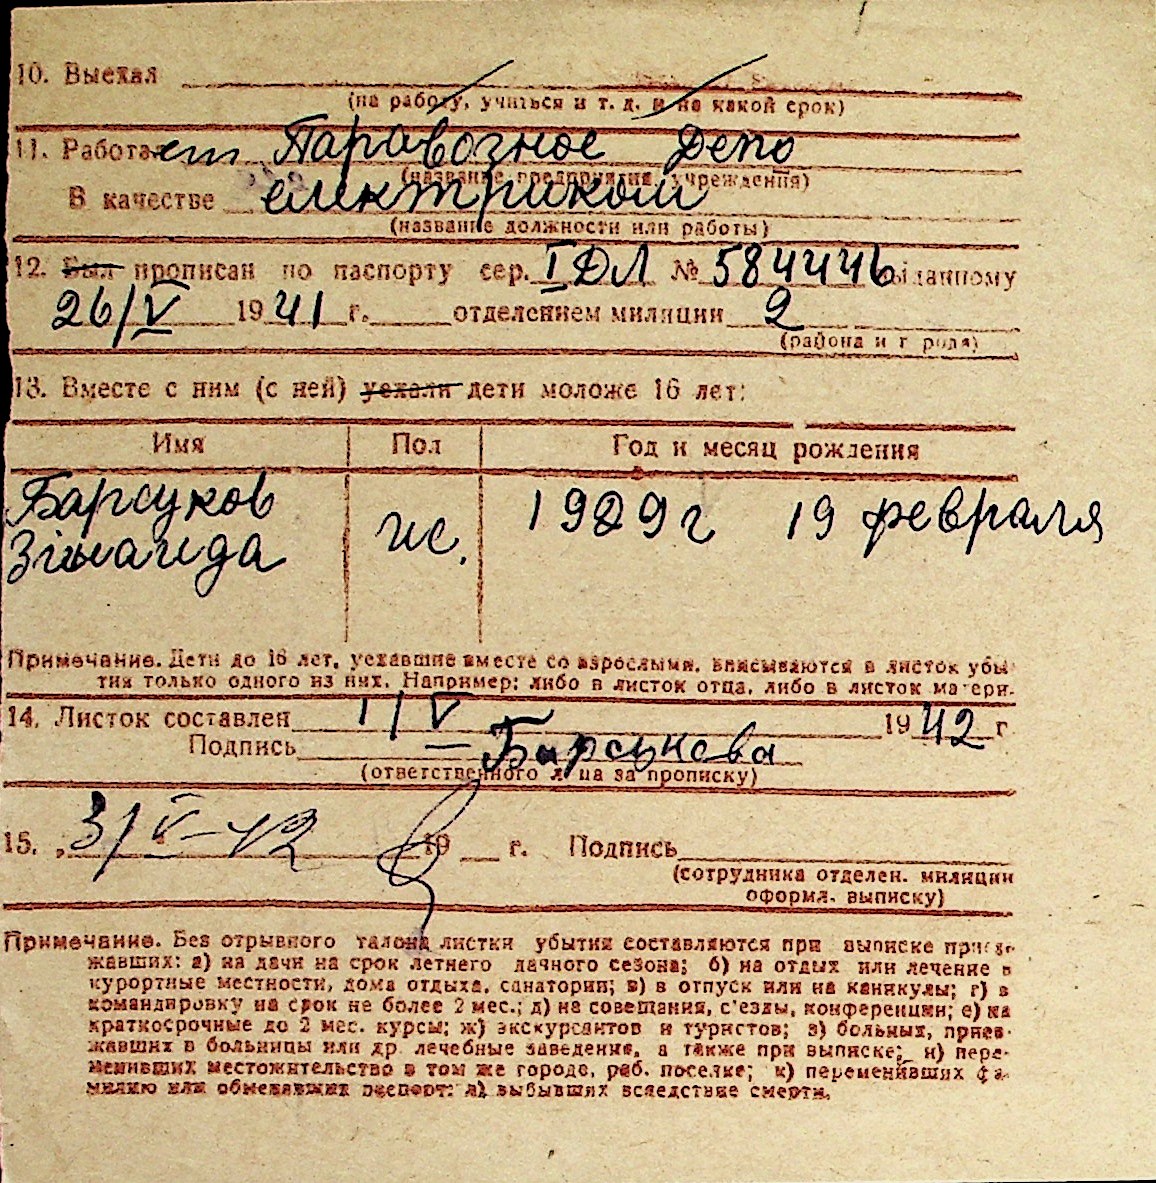 10. Выехал
(на работу, учиться и т. д. и на какой срок)
11. Работает Паравозное Депо
(название предприятия, учреждения)
В качестве електриком
(название должности или работы)
12. Был прописан по паспорту сер. I ДЛ № 584446 выданному
26/V 1941 г. отделением милиции 2
(района и города)
13. Вместе с ним (с ней) уехали дети моложе 16 лет:
Имя Пол Год и месяц рождения
Барсуков
Зінаида жс. 1929 г 19 февраля
Примечание. Дети до 16 лет, уехавшие вместе со взрослыми, вписываются в листок убы-
тия только одного из них. Например: либо в листок отца, либо в листок матери.
14. Листок составлен 1/V 1942 г
Подпись — Барсукова
(ответственного лица за прописку)
15. „ 3/V-42 19 г. Подпись
(сотрудника отделен. милиции
оформл. выписку)
Примечание. Без отрывного талона листки убытия составляются при выписке приез-
жавших: а) на дачи на срок летнего дачного сезона; б) на отдых или лечение в
курортные местности, дома отдыха, санатории; в) в отпуск или на каникулы; г) в
командировку на срок не более 2 мес.; д) на совещания, с'езды, конференции; е) на
краткосрочные до 2 мес. курсы; ж) экскурсантов и туристов; з) больных, приез-
жавших в больницы или др. лечебные заведения, а также при выписке; и) пере-
менивших местожительство в том же городе, раб. поселке; к) переменивших фа-
милию или обменявших паспорт; л) выбывших вследствие смерти.